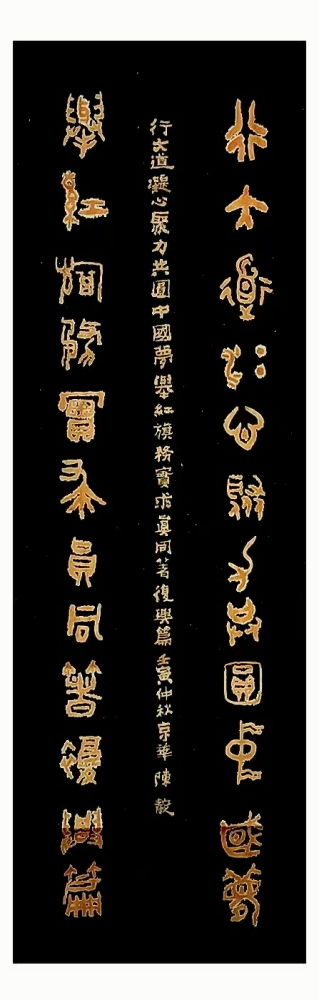 行大道凝心聚力共圓中國夢
行大道凝心聚力共圓中國夢舉紅旗務實求眞同著復興篇壬寅仲秋京華陳
舉紅旗務實求眞同著復興篇